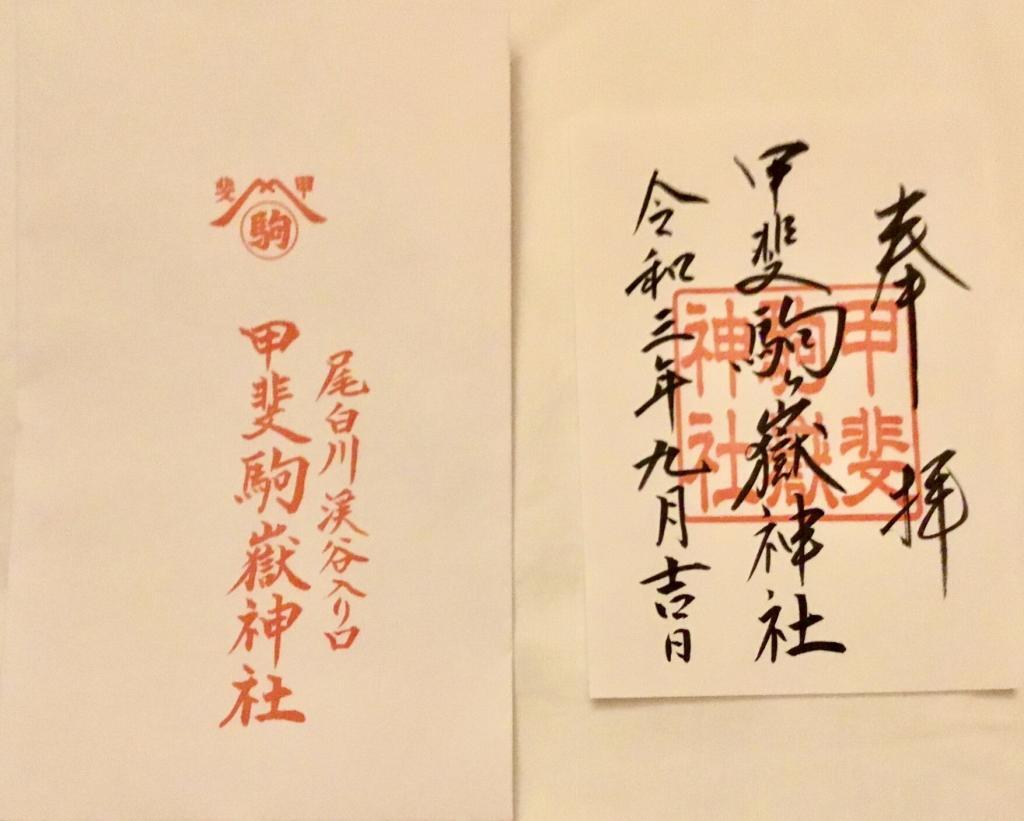 甲斐
駒
尾白川渓谷入り口
甲斐駒嶽神社
奉拝
甲斐駒ヶ嶽神社
令和三年九月吉日
甲斐
駒嶽
神社